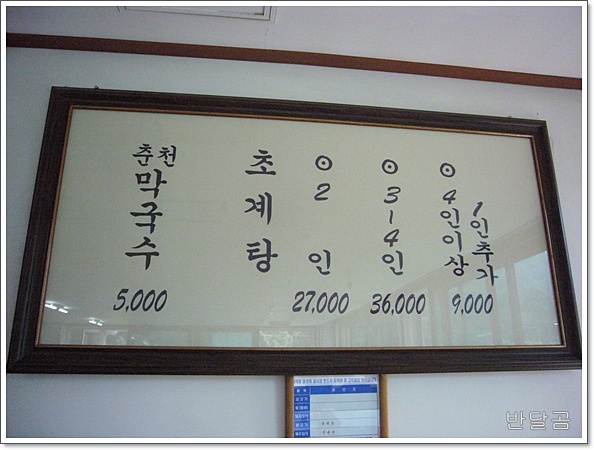 춘천
막국수
5,000
초계탕
⊙ 2 인
27,000
⊙ 3-4인
36,000
⊙ 4인이상
1인추가
9,000
반달곰